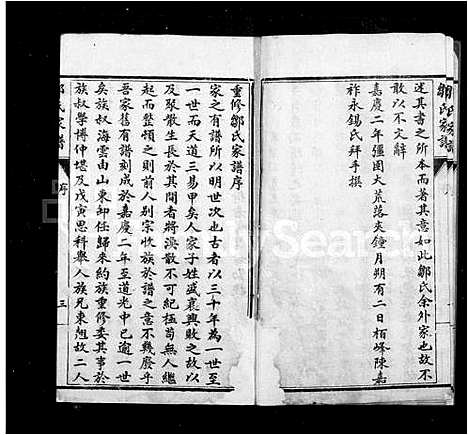 鄒氏家譜
述其書之所本而著其意如此鄒氏余外家也故不
敢以不文辭
嘉慶二年彊圉大荒落夾鐘月朔有二日栢峰陳嘉
祚永錫氏拜手撰
重修鄒氏家譜序
家之有譜所以明世次也古者以三十年為一世至
一世而天道三易甲矣人家子姓盛衰興敗之故以
及聚散生長於其間者將渙散不可紀極苟無人繼
起而整頓之則前人別宗收族於譜之意不幾廢乎
吾家舊有譜刻成於嘉慶二年至道光申已逾一世
矣族叔海雲由山東卸任歸來約族重修委其事於
族叔學博仲堪及戊寅思科舉人族兄東旭故二人
氏家譜
序
三